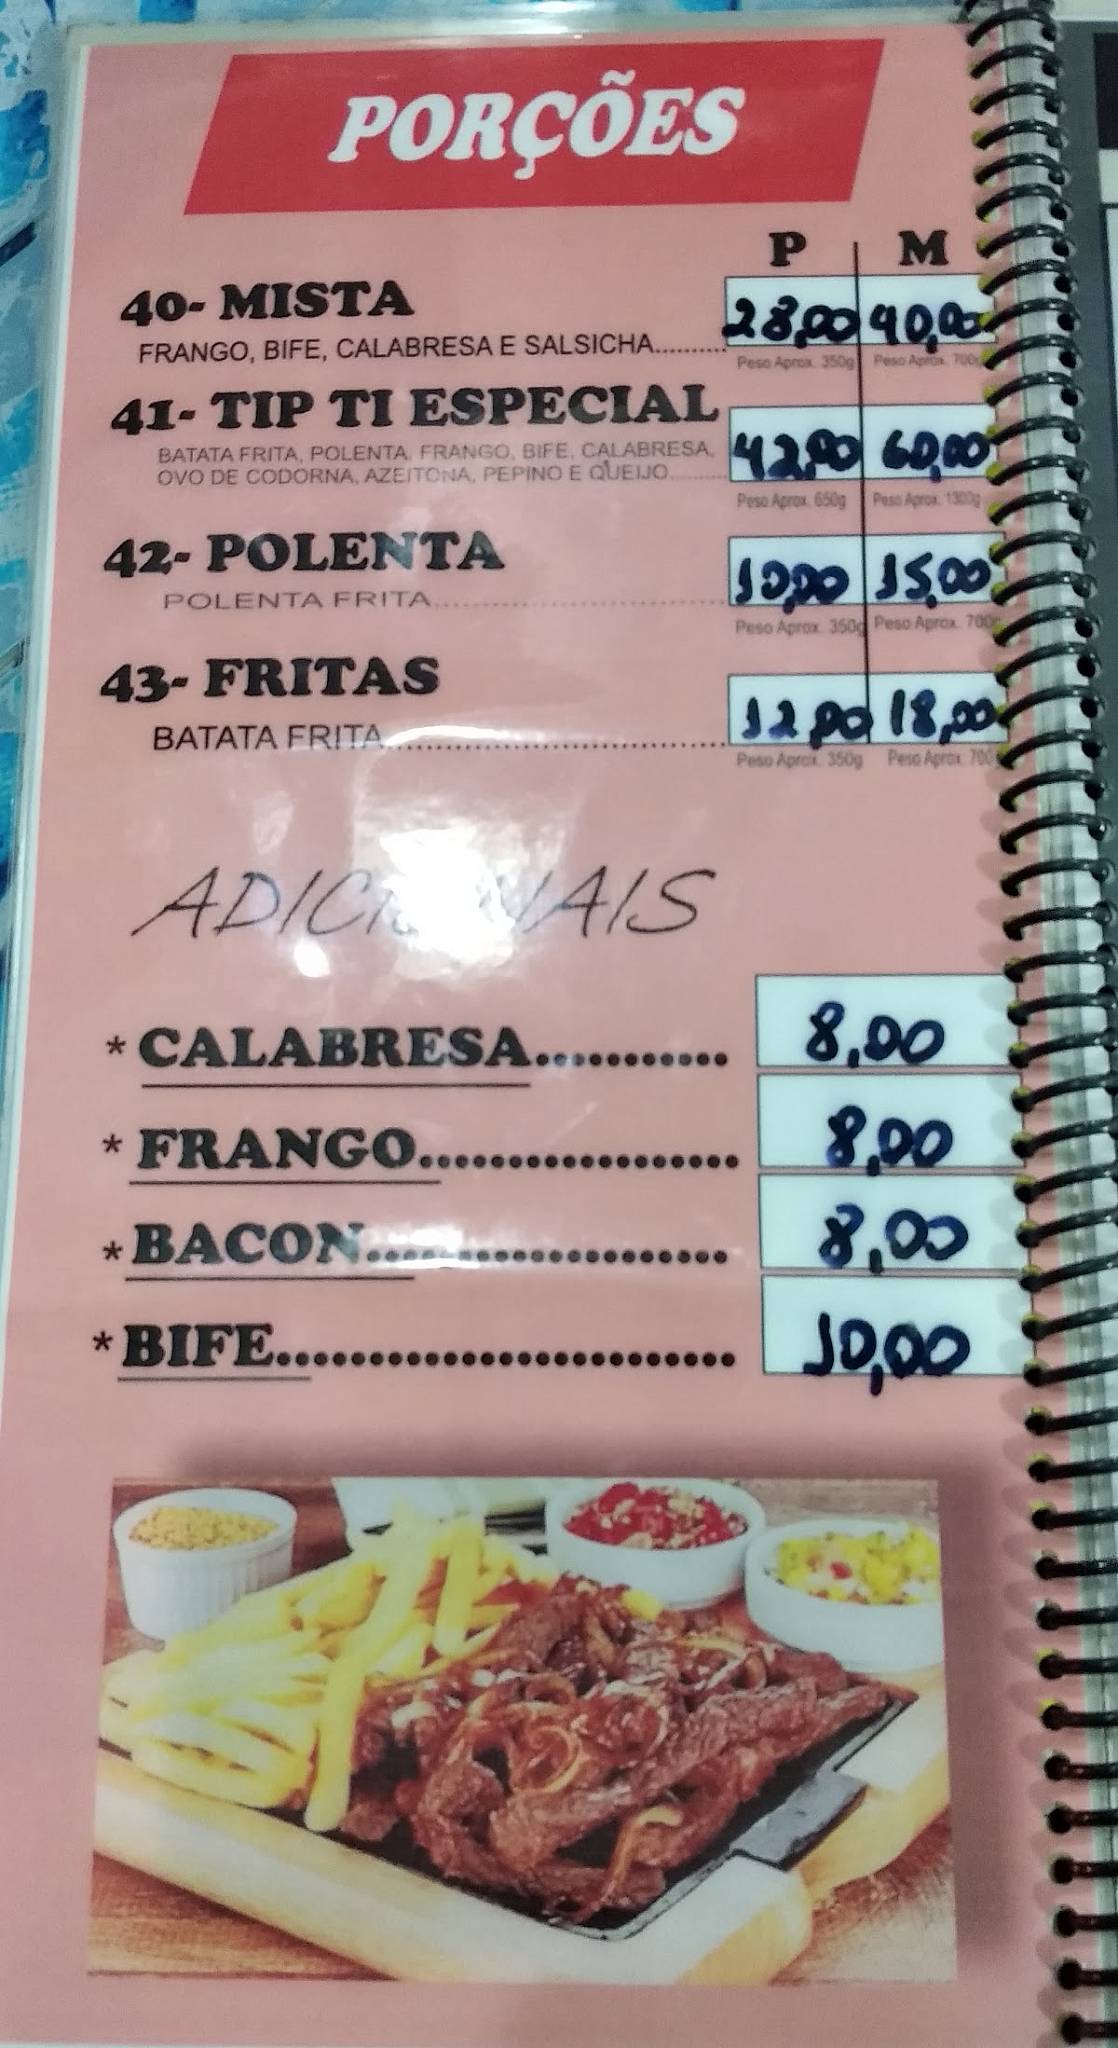 PORÇÕES
P M
40- MISTA
28,00 40,00
FRANGO, BIFE, CALABRESA E SALSICHA..........
Peso Aprox. 350g Peso Aprox. 700g
41- TIP TI ESPECIAL
BATATA FRITA, POLENTA, FRANGO, BIFE, CALABRESA,
42,00 60,00
OVO DE CODORNA, AZEITONA, PEPINO E QUEIJO..........
Peso Aprox. 650g Peso Aprox. 1300g
42- POLENTA
10,00 15,00
POLENTA FRITA..............................
Peso Aprox. 350g Peso Aprox. 700g
43- FRITAS
12,00 18,00
BATATA FRITA..............................
Peso Aprox. 350g Peso Aprox. 700
ADICIONAIS
* CALABRESA........... 8,00
* FRANGO.................. 8,00
* BACON.................... 8,00
* BIFE......................... 10,00